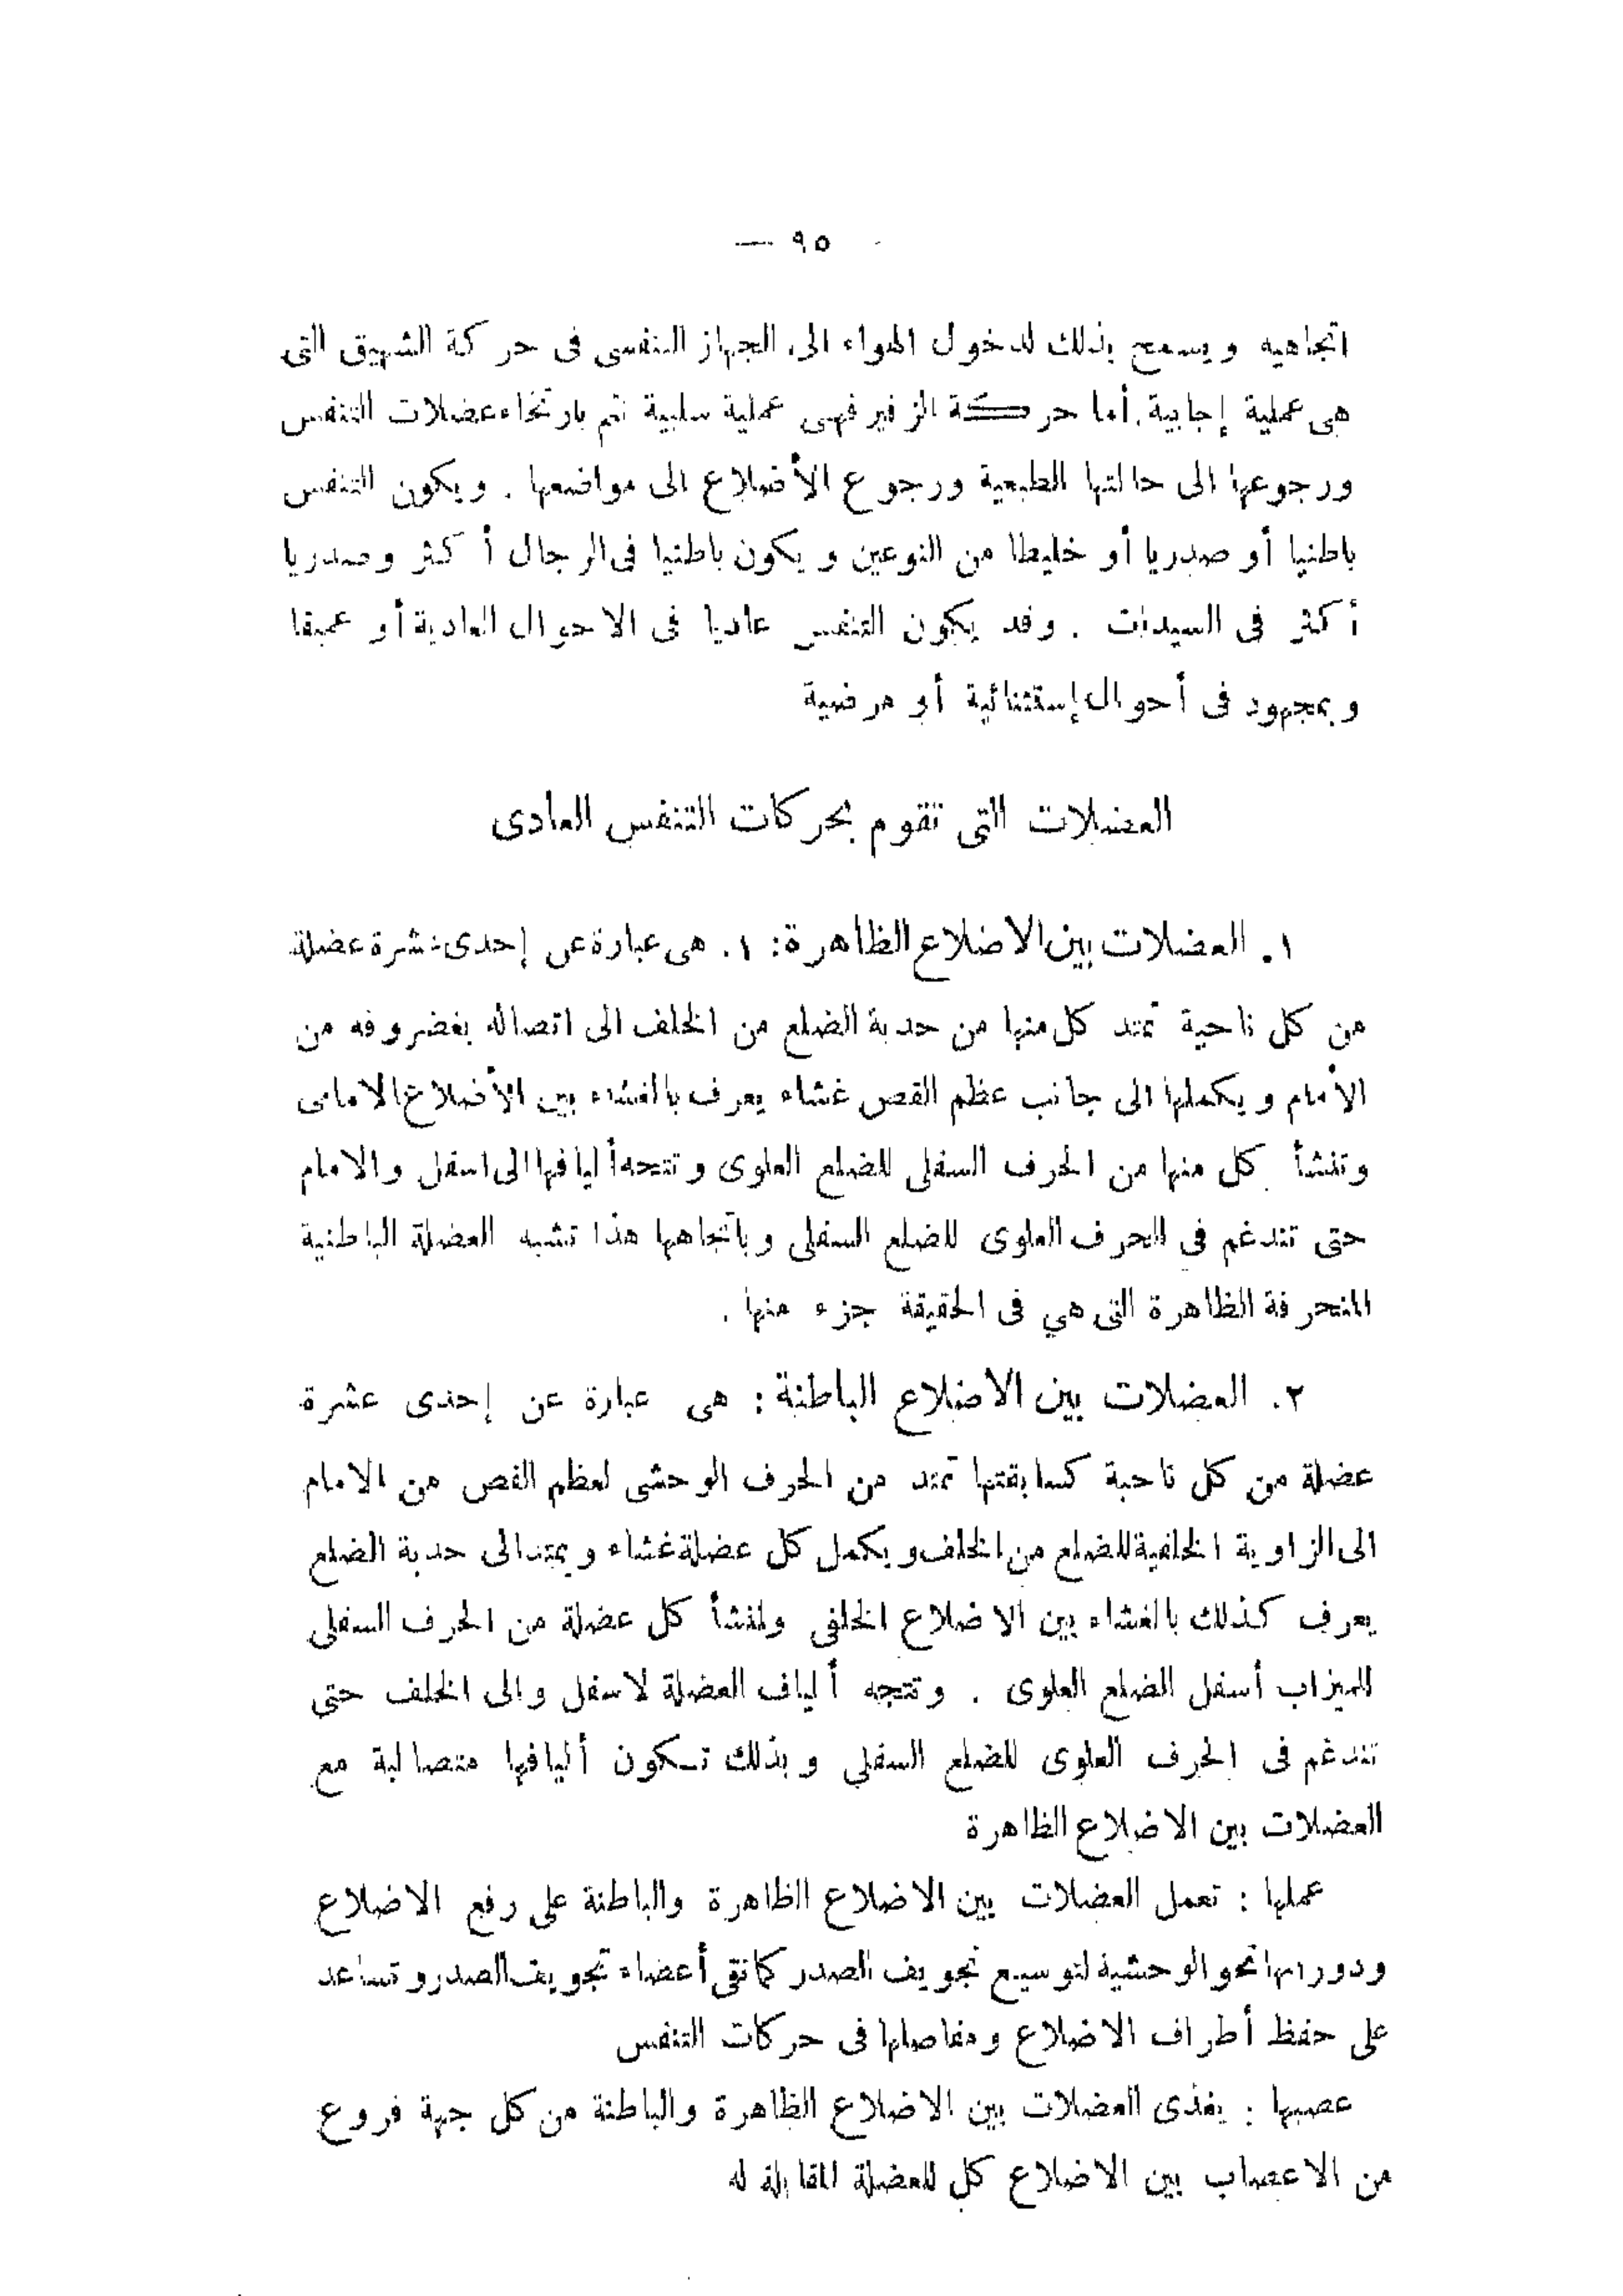 — ٩٥
اتجاهيه ويسمح بذلك لدخول الهواء الى الجهاز التنفسى فى حركة الشهيق التى
هى عملية إجابية. أما حركة الزفير فهى عملية سلبية تتم بارتخاء عضلات التنفس
ورجوعها الى حالتها الطبعية ورجوع الأضلاع الى مواضعها . ويكون التنفس
باطنيا أو صدريا أو خليطا من النوعين ويكون باطنيا فى الرجال أكثر وصدريا
أكثر فى السيدات . وقد يكون التنفس عاديا فى الاحوال العادية أو عميقا
وبمجهود فى أحوال إستثنائية أو مرضية
العضلات التى تقوم بحركات التنفس العادى
١. العضلات بين الاضلاع الظاهرة: ١. هى عبارة عن إحدى عشرة عضلة
من كل ناحية تمتد كل منها من حدبة الضلع من الخلف الى اتصاله بغضروفه من
الأمام ويكملها الى جانب عظم القص غشاء يعرف بالغشاء بين الأضلاع الامامى
وتنشأ كل منها من الحرف السفلى للضلع العلوى وتتجه أليافها الى اسفل والامام
حتى تندغم فى الحرف العلوى للضلع السفلى وباتجاهها هذا تشبه العضلة الباطنية
المنحرفة الظاهرة التى هي فى الحقيقة جزء منها .
٢. العضلات بين الاضلاع الباطنة : هى عبارة عن إحدى عشرة
عضلة من كل ناحية كسابقتها تمتد من الحرف الوحشى لعظم القص من الامام
الى الزاوية الخلفية للضلع من الخلف ويكمل كل عضلة غشاء ويمتد الى حدبة الضلع
يعرف كذلك بالغشاء بين الاضلاع الخلفى وتنشأ كل عضلة من الحرف السفلى
للميزاب أسفل الضلع العلوى . وتتجه ألياف العضلة لاسفل والى الخلف حتى
تندغم فى الحرف العلوى للضلع السفلى وبذلك تكون أليافها متصالبة مع
العضلات بين الاضلاع الظاهرة
عملها : تعمل العضلات بين الاضلاع الظاهرة والباطنة على رفع الاضلاع
ودورانها نحو الوحشية لتوسيع تجويف الصدر كما تقى أعضاء تجويف الصدر وتساعد
على حفظ أطراف الاضلاع ومفاصلها فى حركات التنفس
عصبها : يغذى العضلات بين الاضلاع الظاهرة والباطنة من كل جهة فروع
من الاعصاب بين الاضلاع كل للعضلة المقابلة له